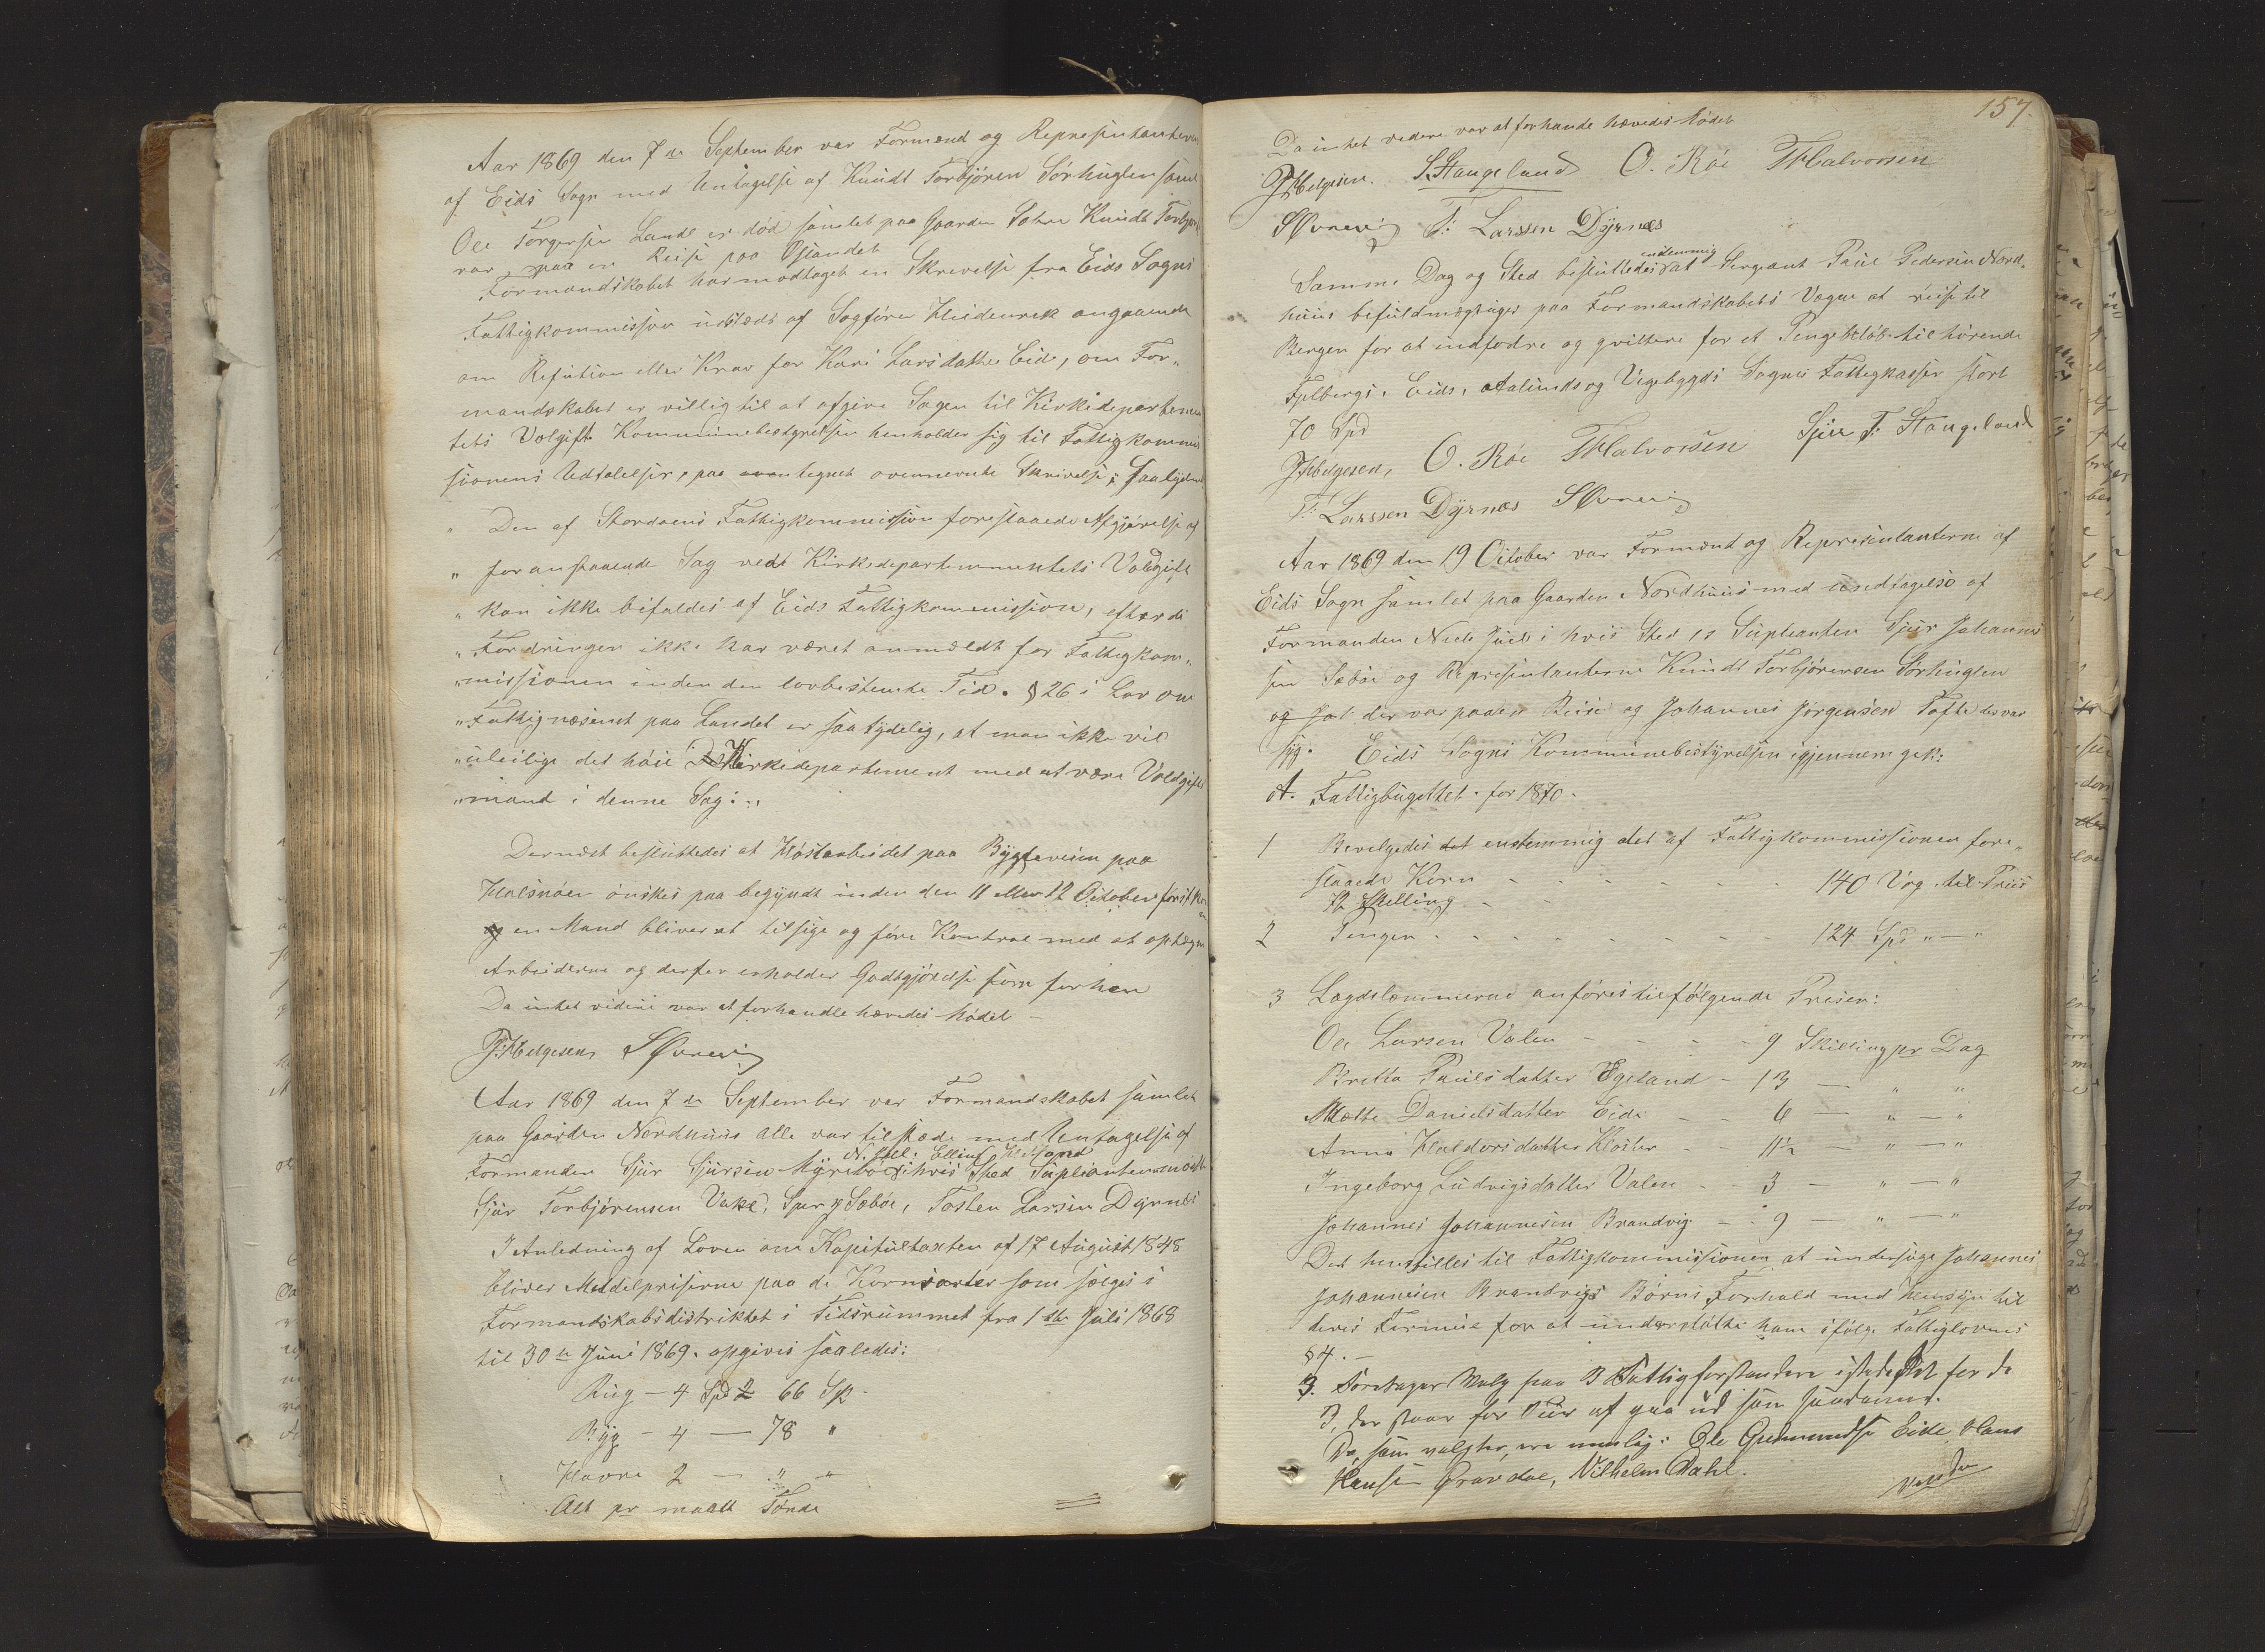 Aar 1869 den 7de September var Formænd og Repræsintanterne
af Eids Sogn med Untagelse af Knudt Torbjören Sörhuglen samt
Ole Torgersen Lande er död samlet paa Gaarden Knudt Torbjør
var paa en Reise paa Østandet
Formandskabet har modtaget en Skrivelse fra Eids Sogns
Fattigkommission udstædt af Sagförer Heidenrek angaaende
om Refution eller Krav for Kari Larsdatter Eide, om For„
mandskabet er villig til at afgive Sagen til Kirkedepartemen
tets Volgift Kommunebestyrelsen henholder sig til Fattigkommis
sionens Udtalelser, paa tegnet ovennevnte Skrivelse; saalydend
„ Den af Stordöens Fattigkommission foreslaaede Afgjörelse af
„ foranstaaende Sag ved Kirkedepartementets Voldgift
„ kan ikke bifaldes af Eids Fattigkommission, efterdi
„ Fordringen ikke har været anmældt for Fattigkom„
„missionen inden den lovbestemte Tid. § 26 i Lov om
„Fattigvæsenet paa Landet er saa tydelig, at man ikke vil
„uleilige det höie Kirkedepartement med at være Voldgifts
„mand i denne Sag:„
Dernæst besluttedes at Höstarbeidet paa Bygdeveien paa
Halsnöen önskes paa begyndt inden den 11 eller 12 October förstk
og en Mand bliver at tilsige og före Kontrol med at optegne
Arbeiderne og derfor erholder Godtgjörelse som forhen
Da intet videre var at forhandle hævedes Mödet –
J. Helgesen S Øvrevig
Aar 1869 den 7de September var Formandskabet samlet
paa Gaarden Nordhuus alle var tilstæde med Untagelse af
N. Juel. Elling Hetland
Formanden Sjur Sjursen Myreböe i hvis Sted Suplianten mödte
Sjur Torbjörensen Vake, Sjur J Sæböe, Tosten Larsen Dyrnes
I Anledning af Loven om Kapitultaxten af 17 August 1848
bliver Meddelpriserne paa de Kornsorter som sælges i
Formandskabsdistriktet i Tidsrummet fra 1ste Juli 1868
til 30te Juni 1869. opgives saaledes:
Rug – 4 Spd 2 66 Sk
Byg – 4 — 78 "
Havre 2 — " "
Alt pr maalt Tönde
157.
Da intet vedere var at forhande hævedes Mödet
J Helgesen. S. Stangeland O. Röe T Halvorsen
S Øvrevig T: Larssen Dÿrnæs
endemmig
Samme Dag og Sted besluttedes at Sergeant Paul Pedersen Nord„
huus befuldmægtiges paa Formandskabets Vegne at reise til
Bergen for at indfodre og qvittere for et Pengebelöb tilhörende
Fjelbergs, Eids, Aalunds og Vegebygds Sognes Fattigkasser stort
70 Spd
J Helgesen, O. Röe T Halvorsen Sjur T: Stangeland
T: Larssen Dÿrnæs S Øvrevig
Aar 1869 den 19 October var Formænd og Repræsintanterne af
Eids Sogn samlet paa Gaarden Nordhuus med unedtagelse af
Formanden Niels Juel i hvis Sted er Suplianten Sjur Johannes
sen Sæböe og Repræsintanterne Knudt Torbjörensen Sörhuglen
og Joh der var paa en Reise og Johannes Jörgensen Tofte der var
syg. Eids Sogns Kommunebestyrelsen igjennemgik:
A. Fattigbugettet for 1870.
1 Bevelgedes det enstemmig det af Fattigkommissionen fore„
slaaede Korn - - - - - - 140 Vog til Priis
72 Skelling - -
2 Penger - - - - - - - 124 Spd „—„
3 Lægdelæmmerne anföres til fölgende Priser:
Ole Larsen Valen - - - - 9 Skilling pr Dag
Britta Paulsdatter Egeland - 13 — " "
Mætte Danielsdatter Eide - - 6 — " — "
Anna Haldorsdatter Kloster - 11½ — " — "
Ingeborg Ludvigsdatter Valen - - 3 — " — "
Johannes Johannesen Brandvig - - 9 — " — "
Det henstilles til Fattigkommissionen at undersöge Johannes
Johannesen Brandvigs Börns Forhold med Hensyn til
deres Formue for at understötte ham ifölge Fattiglovens
§ 4. –
3. Foretages Valg paa 3 Fattigforstandere istedetfor de
3, der staar for Tuur at gaa ud som saadanne.
De, som valgtes, ere nemlig: Ole Gudmundse Eide, Hans
Hansen Gravdal, Vilhelm Dahl.